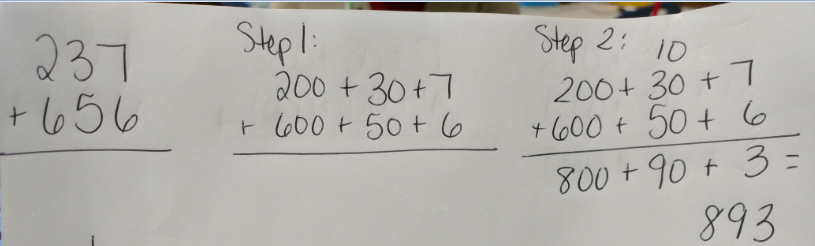 237
+ 656
Step 1:
200 + 30 + 7
+ 600 + 50 + 6
Step 2:
10
200 + 30 + 7
+ 600 + 50 + 6
800 + 90 + 3 =
893